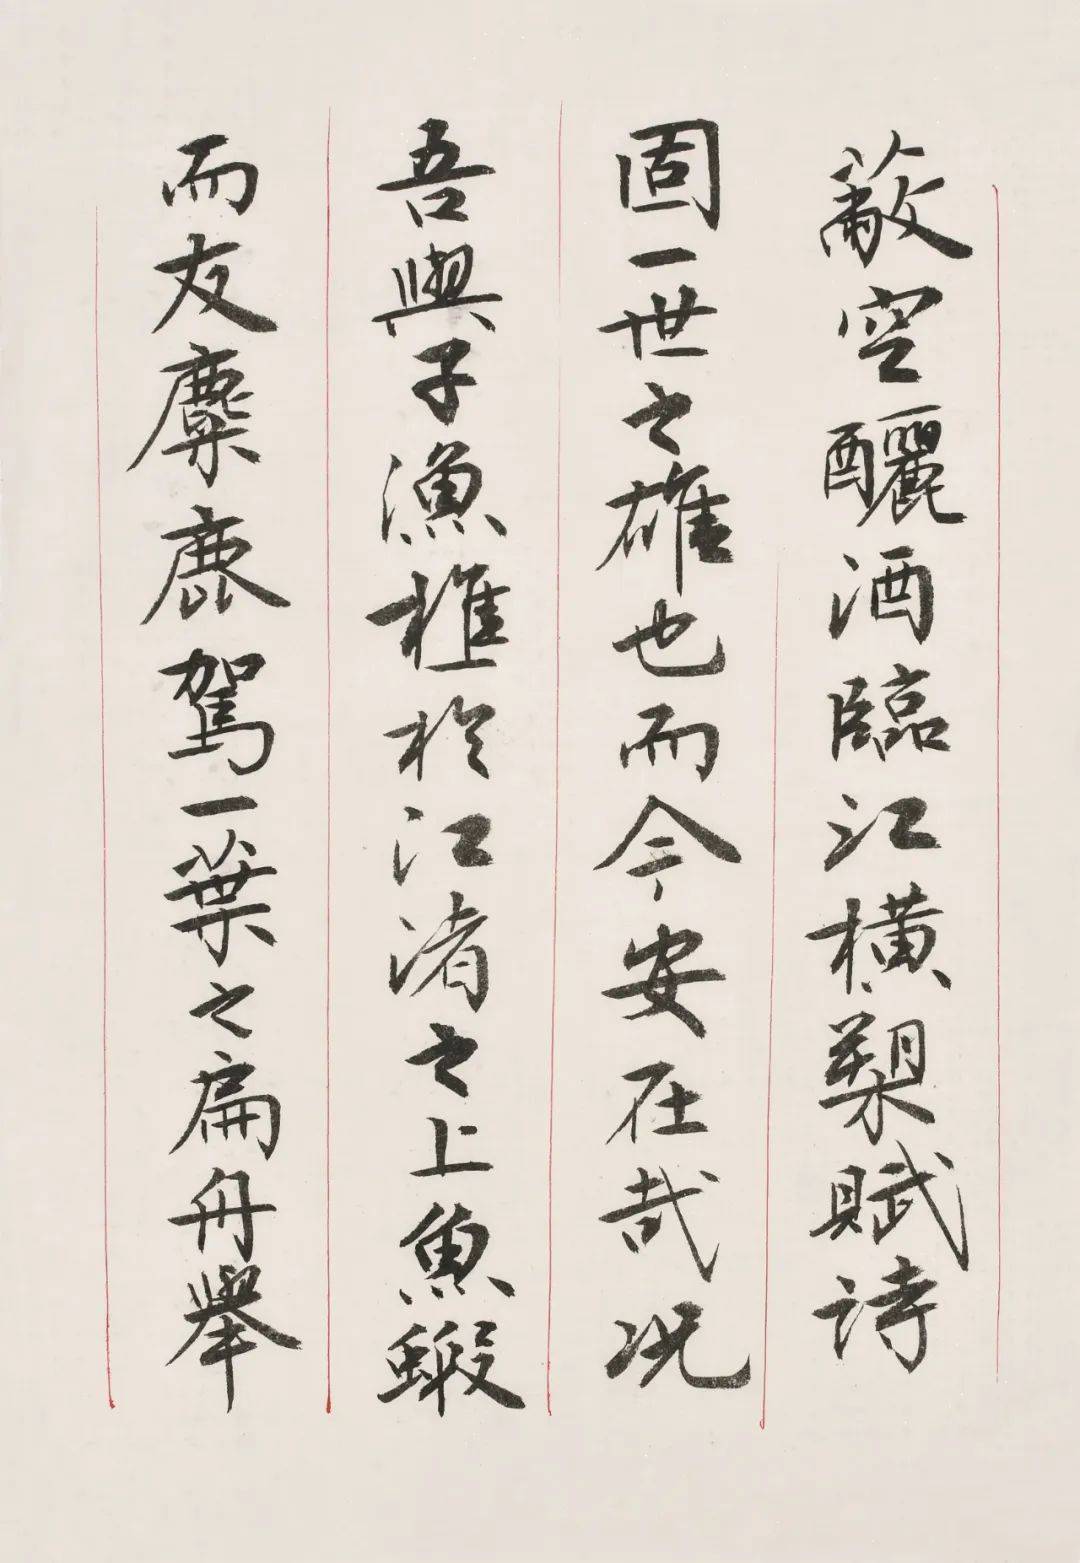 蔽空釃酒臨江橫槊賦詩
固一世之雄也而今安在哉况
吾與子漁樵於江渚之上魚蝦
而友麋鹿駕一葉之扁舟舉